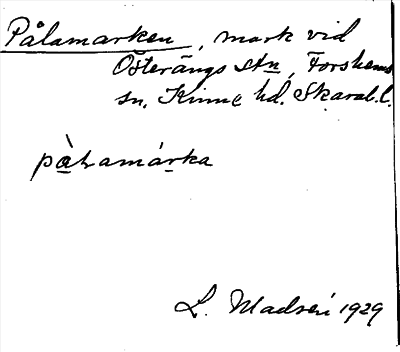 Pålamarken, mark vid
Österängs stn, Forshems
sn, Kinne hd. Skarab. l.
pàlamárka
L. Madsén 1929